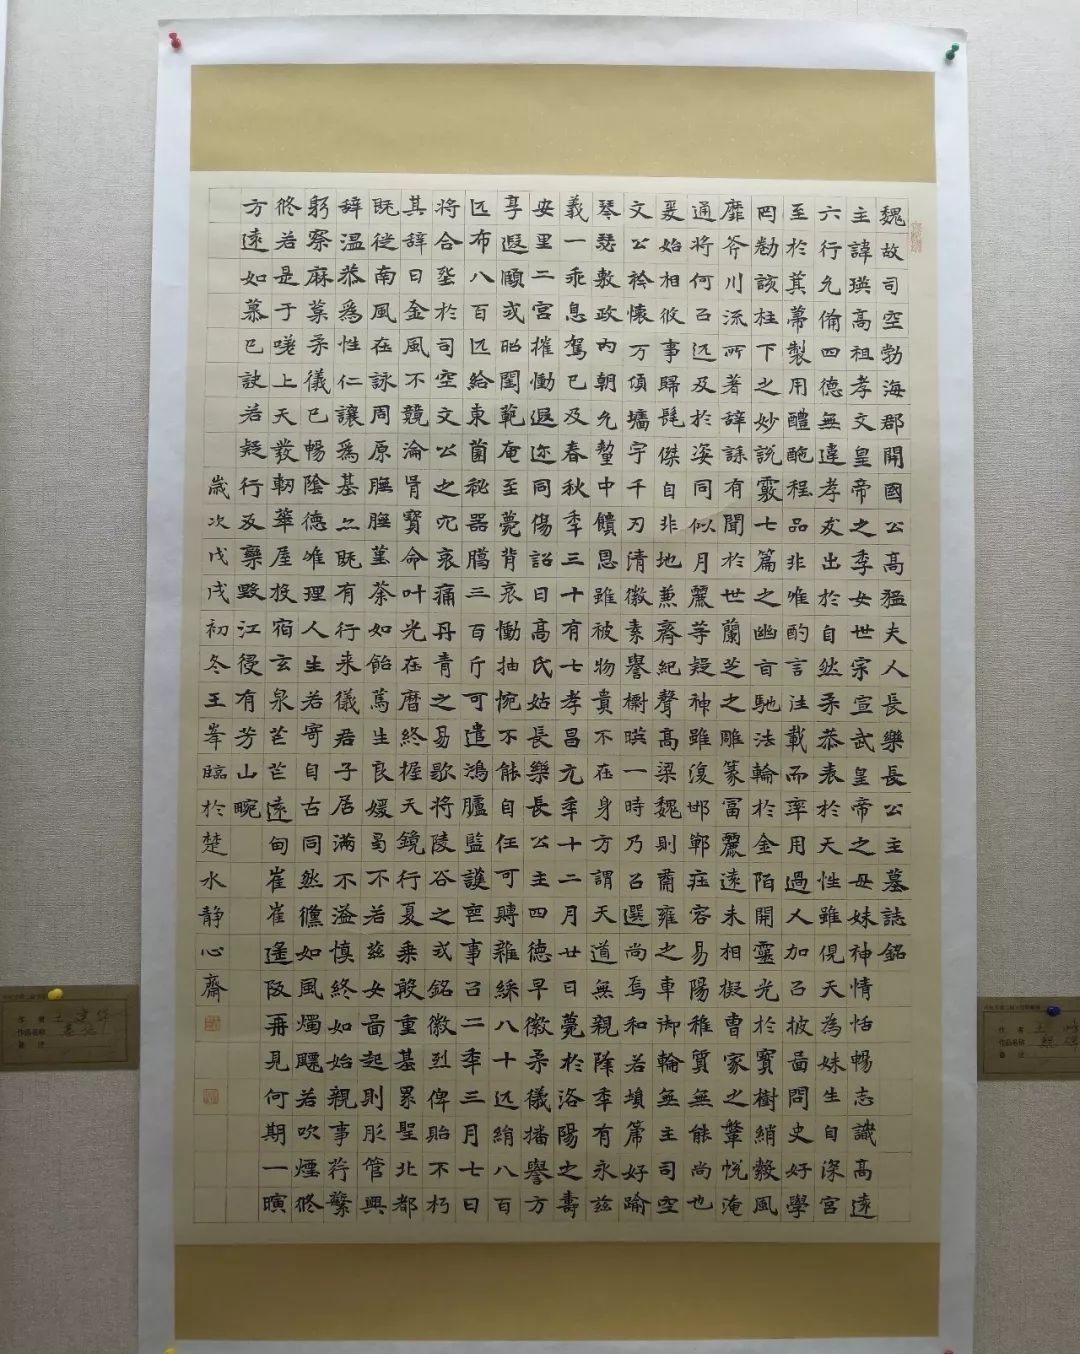 魏故司空勃海郡開國公高猛夫人長樂長公主墓誌銘
主諱瑛高祖孝文皇帝之季女世宗宣武皇帝之母妹神情恬暢志識高遠
六行允俻四德無違孝友出於自然柔恭表於天性雖俔天為妹生自深宮
至於箕蒂製用醴酏程品非唯酌言注載而率用過人加㠯披啚問史好學
罔勌該柱下之妙說覈七篇之幽㫖馳法輪於金陌開靈光於寶樹綃縠風
靡斧川流所著辞誄有聞於世蘭芝之雕篆富麗遠未相擬曹家之鞶帨淹
通將何㠯迊及於姿同似月麗等疑神雖復邯鄲莊容易陽稚質無能尚也
爰始相攸事歸髦傑自非地兼齊紀聲高梁魏則肅雍之車御輪無主司空
文公衿懷万傾墻宇千刃清徽素譽㯳暎一時乃㠯選尚焉和若塤箎好踰
琴瑟敷政內朝允釐中饋恩雖被物貴不在身方謂天道無親降季有永兹
義一乖息駕已及春秋季三十有七孝昌元季十二月廿日薨於洛陽之壽
安里二宮摧慟遐迩同傷詔曰高氏姑長樂長公主四德早徽柔儀播譽方
享遐願或昭閨範奄至薨背哀慟抽惋不能自任可賻雜綵八十迊絹八百
匹布八百匹給東薗秘器臈三百斤可遣鴻臚監護喪事㠯二季三月七日
將合塟於司空文公之穴哀痛丹青之易歇將陵谷之或銘徽烈俾貽不朽
其辞曰金風不競淪胥寶命叶光在曆終握天鏡行夏乘殷重基累聖北都
既從南風在詠周原膴膴堇荼如飴篤生良媛曷不若兹女啚起則彤管興
辞温恭為性仁讓為基亾既有行来儀君子居滿不溢慎終如始親事荇蘩
躬察麻菒柔儀已暢陰德唯理人生若寄自古同然儵如風燭飃若吹煙脩
脩若是于嗟上天發軔華屋投宿玄泉芒芒遠甸崔崔遙阪再見何期一暝
方遠如慕已訣若疑行及藁野江侵有芳山畹
歲次戊戌初冬王峯臨於楚水静心齋
作者
作品名称
备注
作者
作品名称
备注